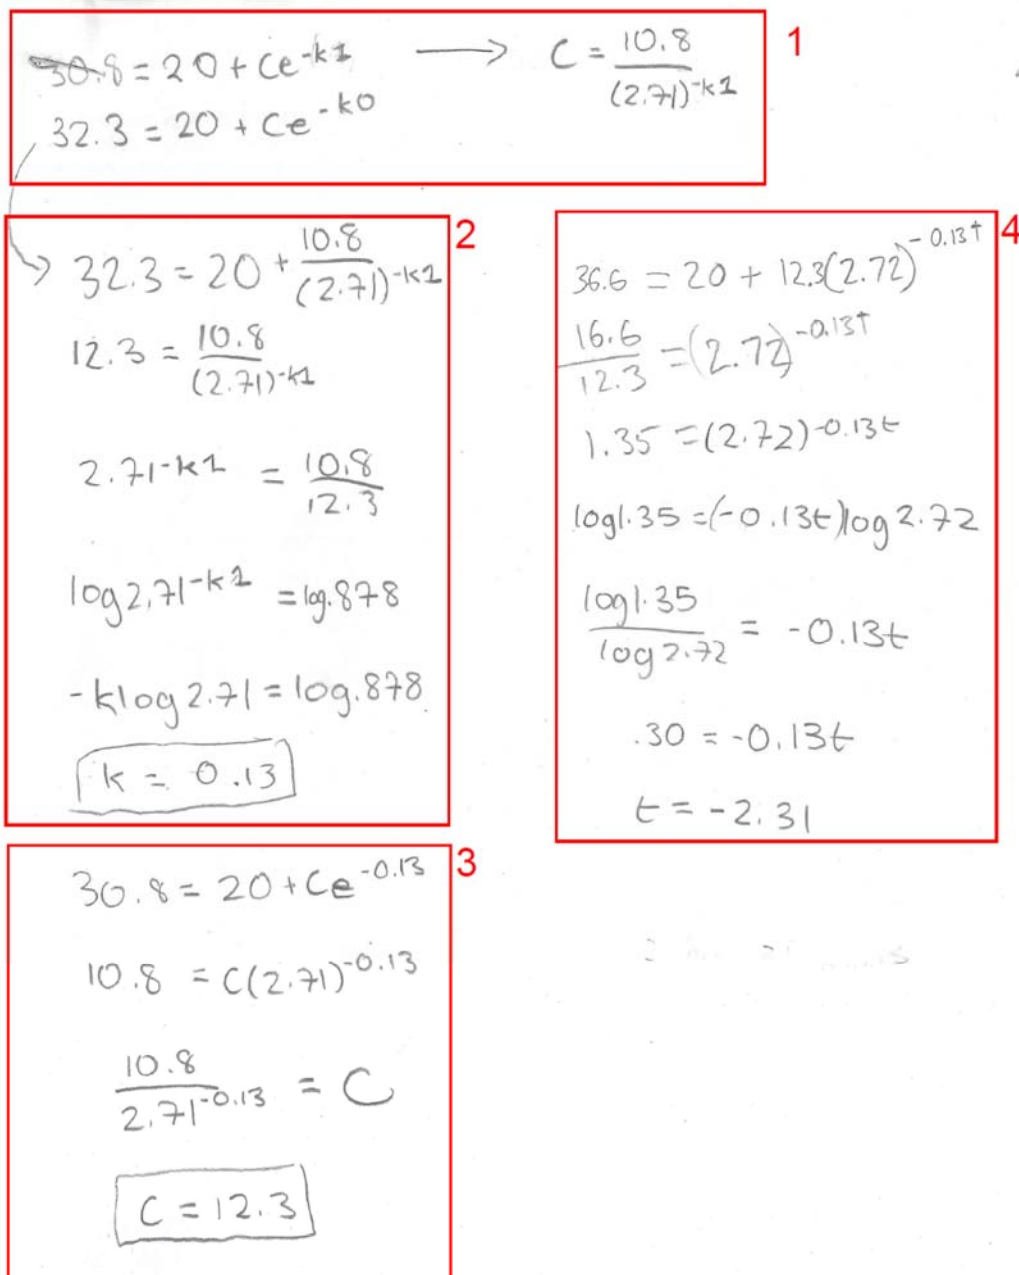 30.8 = 20 + Ce^-k1 → C = 10.8 / (2.71)^-k1
1
32.3 = 20 + Ce^-k0
2
32.3 = 20 + 10.8 / (2.71)^-k1
12.3 = 10.8 / (2.71)^-k1
2.71^-k1 = 10.8 / 12.3
log 2.71^-k1 = log .878
-k log 2.71 = log .878
k = 0.13
3
30.8 = 20 + Ce^-0.13
10.8 = C(2.71)^-0.13
10.8 / 2.71^-0.13 = C
C = 12.3
4
36.6 = 20 + 12.3(2.72)^-0.13t
16.6 / 12.3 = (2.72)^-0.13t
1.35 = (2.72)^-0.13t
log 1.35 = (-0.13t) log 2.72
log 1.35 / log 2.72 = -0.13t
.30 = -0.13t
t = -2.31